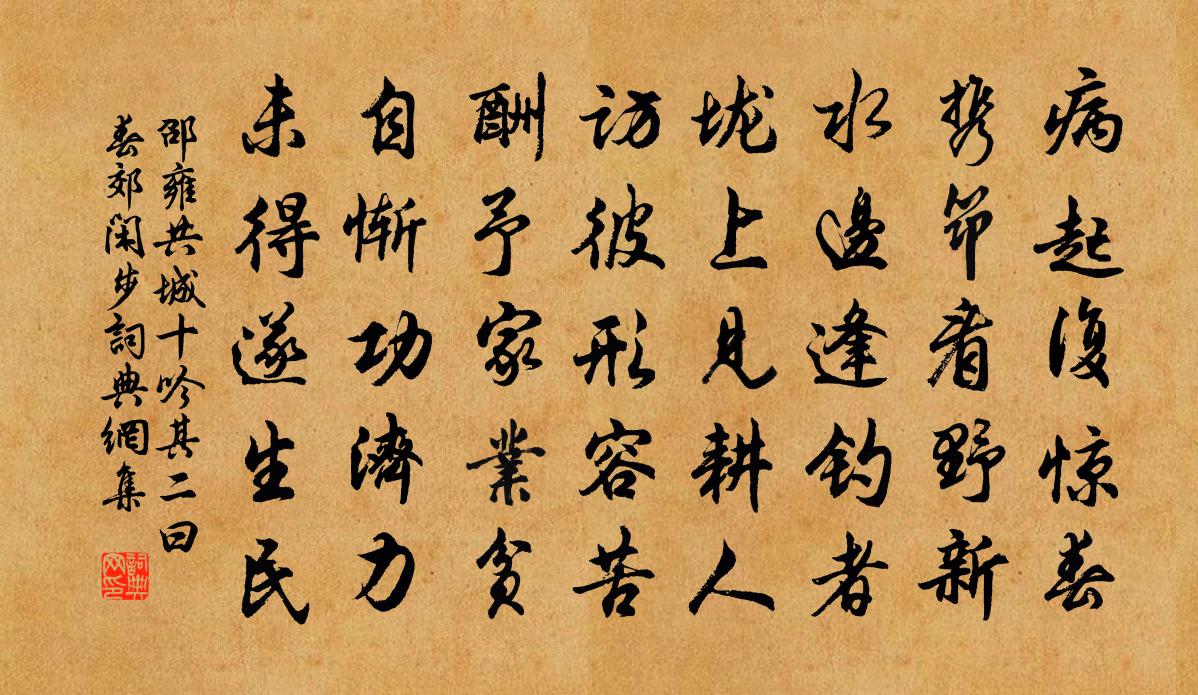 病起復惊春
携笻看野新
水邊逢钓者
垅上見耕人
访彼形容苦
酬予家業贫
自惭功濟力
未得遂生民
邵雍共城十吟其二曰
春郊闲步詞典網集
詞典网印